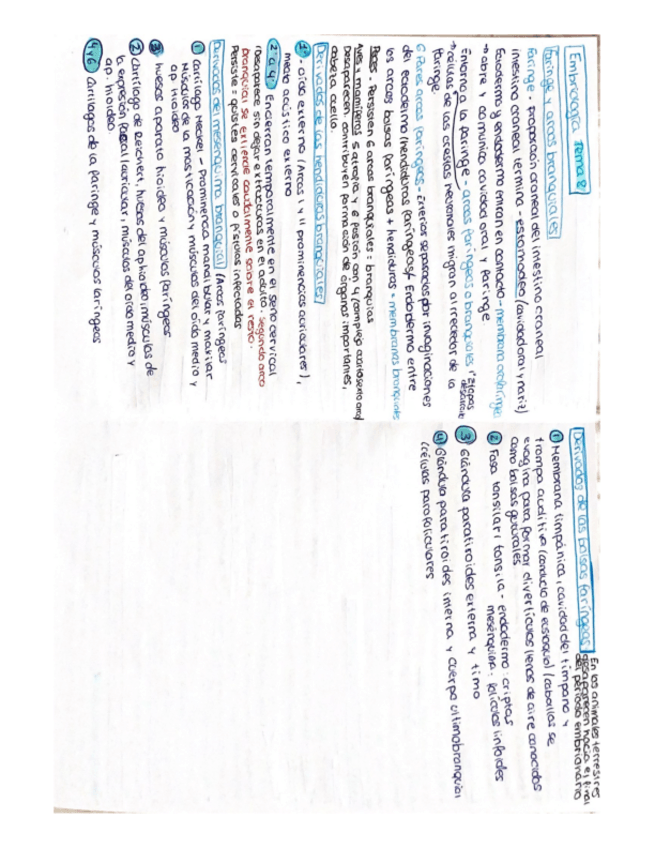 Embriología Tema 8
Faringe y arcos branquiales
Faringe - proporción craneal del intestino craneal
intestino craneal termina - estomodeo (cavidad oral y nariz)
Ectodermo y endodermo entran en contacto - membrana orofaríngea
→ abre y comunica cavidad oral y faringe
Entorno a la faringe - arcos faríngeos o branquiales 1ª Etapas desarrollo
→ células de las crestas neuronales migran alrededor de la
faringe
6 Pares arcos faríngeos - Exterior separados por invaginaciones
del ectodermo (hendiduras faríngeas) Endodermo entre
los arcos bolsas faríngeas + hendiduras = membranas branquiales
Peces - Persisten 6 arcos branquiales = branquias
Aves y mamíferos 5 atrofia y 6 fusión con 4 (complejo
Desaparecen, contribuyen formación de órganos importantes,
cabeza cuello.
Derivados de las hendiduras branquiales
1ª - oído externo (Arcos I y II prominencias auriculares),
meato acústico externo
2ª a 4ª Encierran temporalmente en el seno cervical
(desaparece sin dejar estructuras en el adulto. Segundo arco
branquial se extiende caudalmente sobre el resto.
Persiste = quistes cervicales o fístulas infectadas
Derivados del mesénquima branquial (Arcos faríngeos
1 Cartílago Meckel - Prominencia mandibular y maxilar
Músculos de la masticación y músculos del oído medio y
ap hioideo
3 huesos aparato hioideo y músculos faríngeos
2 Cartílago de Reichert, huesos del ap hioideo, músculos de
la expresión facial (auricular, músculos del oído medio y
ap. hioideo.
4 y 6 Cartílagos de la faringe y músculos laríngeos
Derivados de las bolsas faríngeas
En los animales terrestres
desaparecen hacia el final
del periodo embrionario
1 Membrana timpánica, cavidad del tímpano y
trompa auditiva (conducto de eustaquio) (caballos se
evagina para formar divertículos llenos de aire conocidos
como bolsas guturales
2 Fosa tonsilar, tonsila - endodermo: criptas
mesénquima: folículos linfoides
3 Glándula paratiroides externa y timo
4 Glándula paratiroides interna y cuerpo ultimobranquial
(células parafoliculares